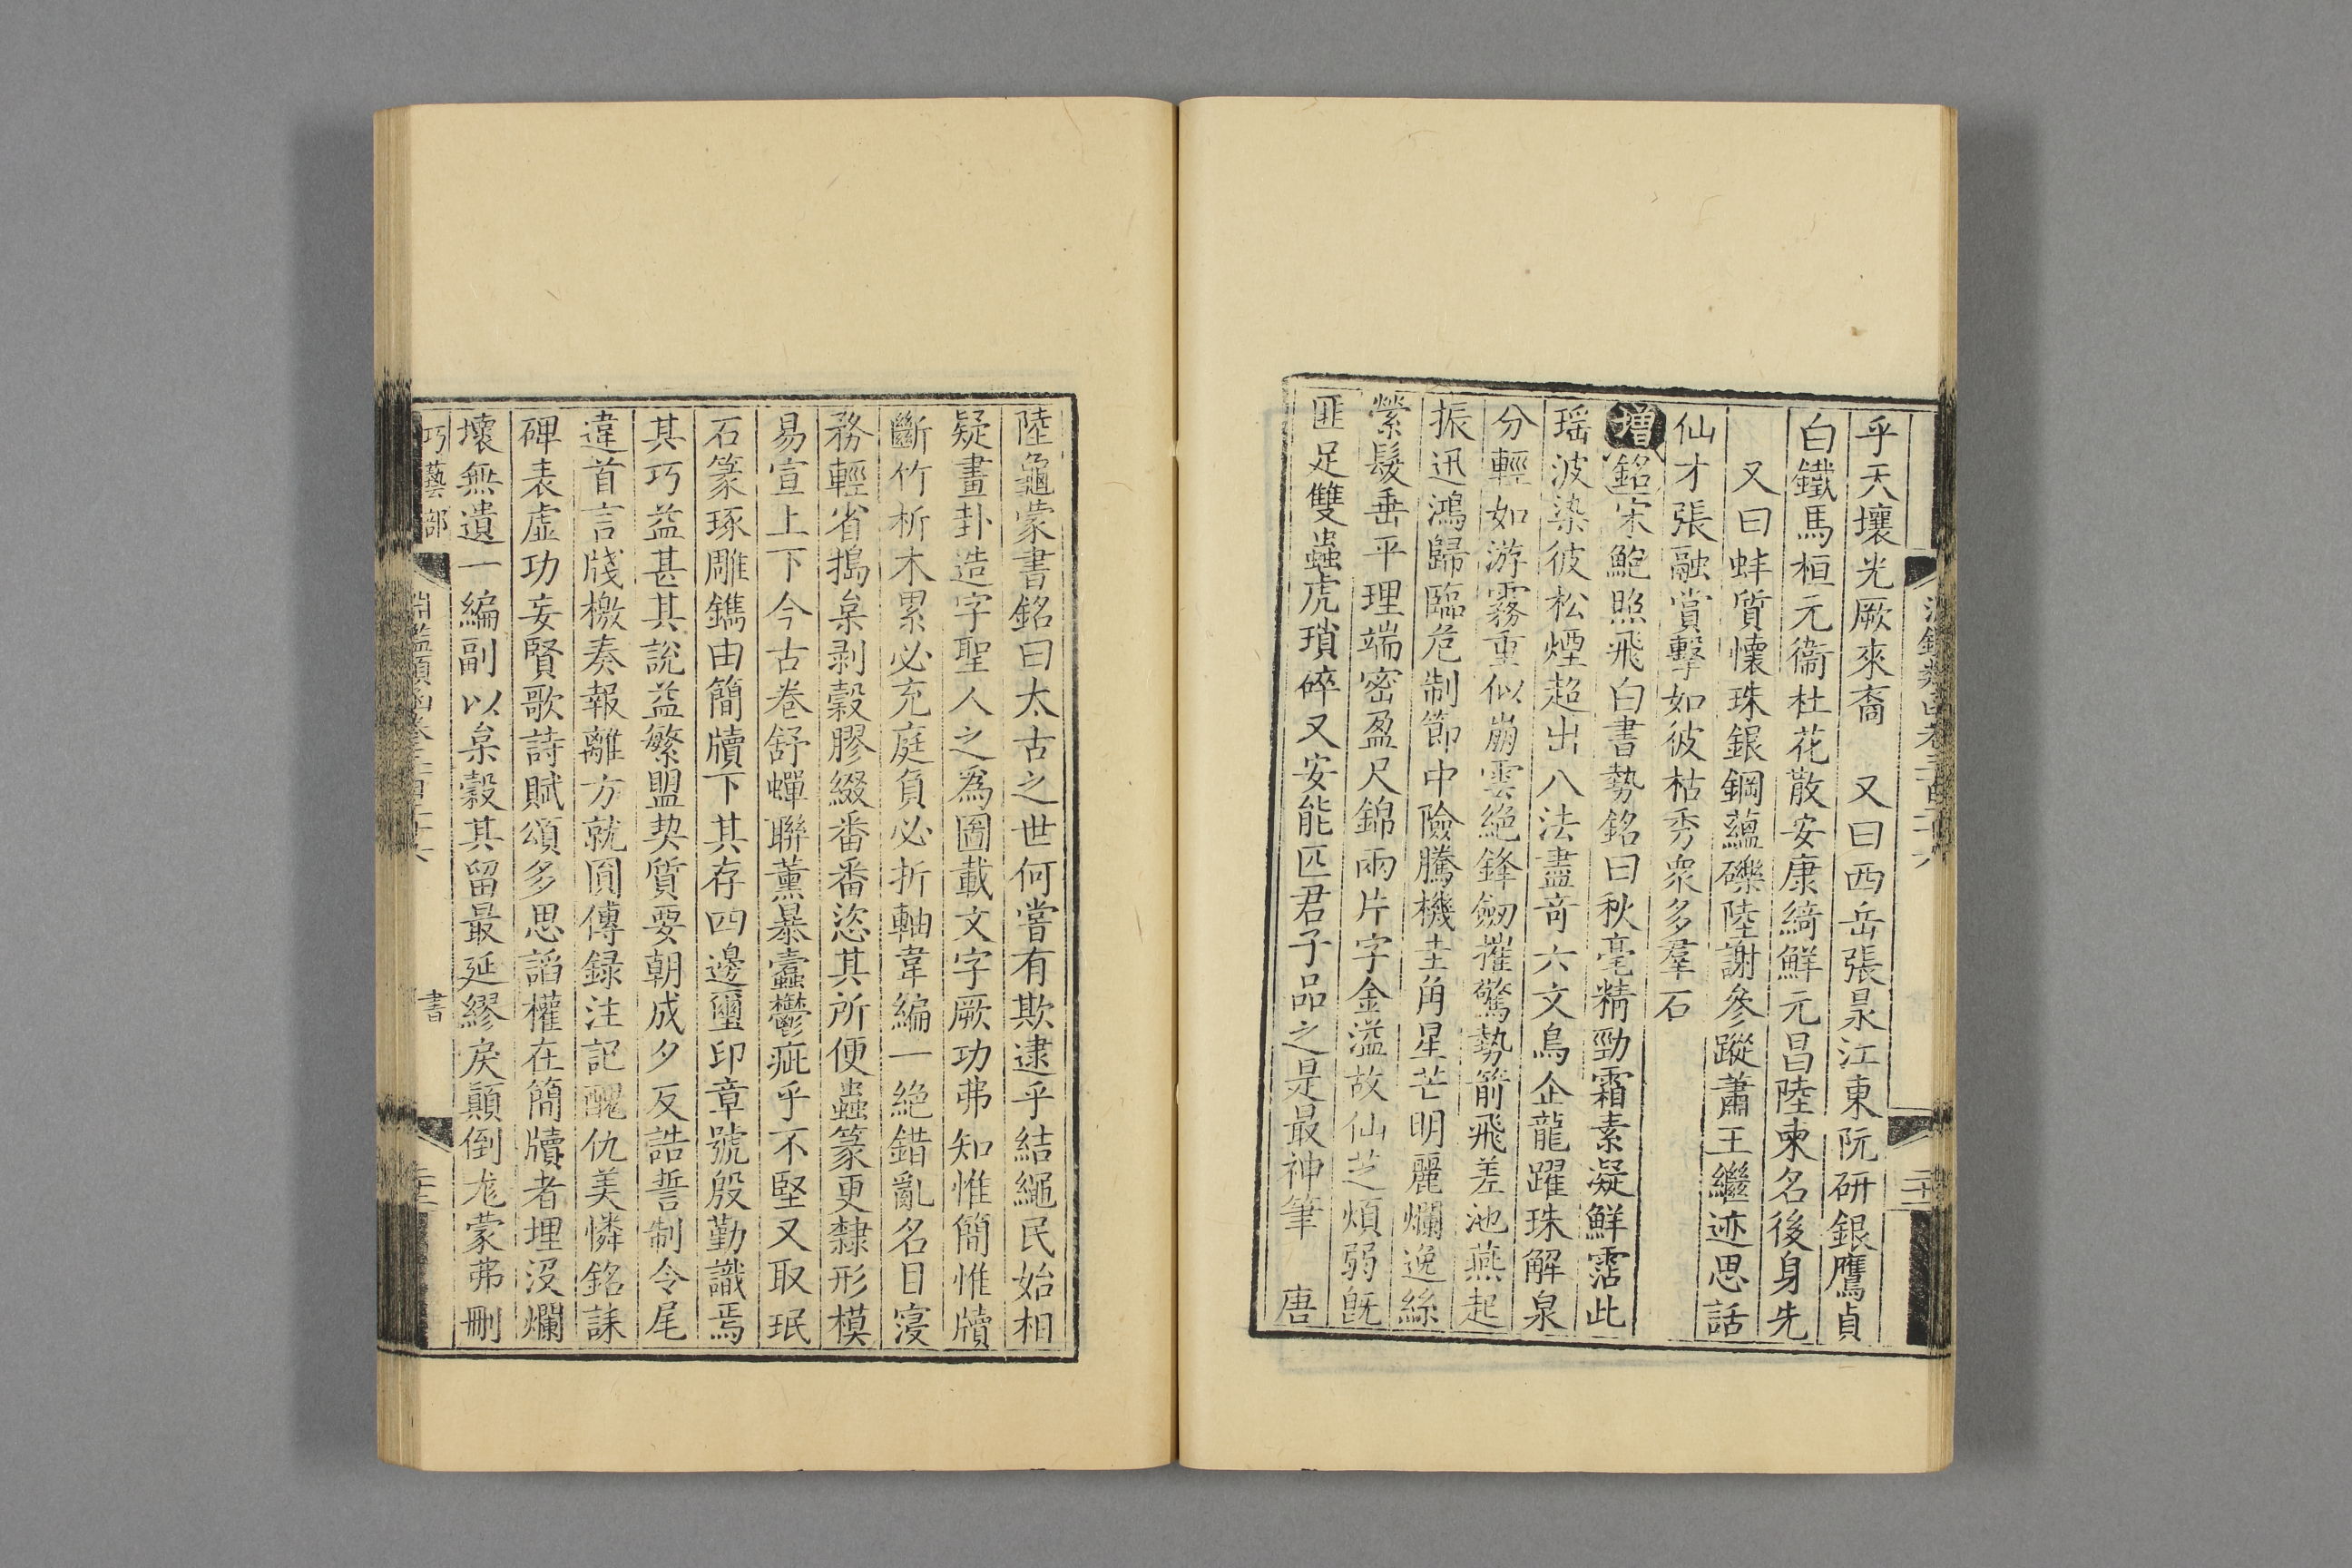 乎天壤光厥來裔　又曰西岳張昶江東阮研銀鷹貞
白鐵馬桓元衞杜花散安康綺鮮元昌陸柬名後身先
又曰蚌質懷珠銀鋼蘊礫陸謝參蹤蕭王繼迹思話
仙才張融賞擊如彼枯秀衆多羣石
增銘宋鮑照飛白書勢銘曰秋毫精勁霜素凝鮮霑此
瑶波染彼松煙超出八法盡奇六文鳥企龍躍珠解泉
分輕如游霧重似崩雲絶鋒劒摧驚勢箭飛差池燕起
振迅鴻歸臨危制節中險騰機圭角星芒明麗爛逸絲
縈髮垂平理端密盈尺錦兩片字金溢故仙芝煩弱旣
匪足雙蟲虎瑣碎又安能匹君子品之是最神筆　唐
陸龜蒙書銘曰太古之世何嘗有欺逮乎結繩民始相
疑畫卦造字聖人之爲圖載文字厥功弗知惟簡惟牘
斷竹析木累必充庭負必折軸韋編一絶錯亂名目寖
務輕省搗枲剥穀膠綴番番恣其所便蟲篆更隸形模
易宣上下今古卷舒蟬聯薰暴蠹鬱疵乎不堅又取珉
石篆琢雕鐫由簡牘下其存四邊璽印章號殷勤識焉
其巧益甚其說益繁盟契質要朝成夕反誥誓制令尾
違首言牋檄奏報離方就圓傳録注記醜仇美憐銘誄
碑表虚功妄賢歌詩賦頌多思謟權在簡牘者埋没爛
壞無遺一編副以枲穀其留最延繆戾顚倒尨蒙弗刪
巧藝部
書